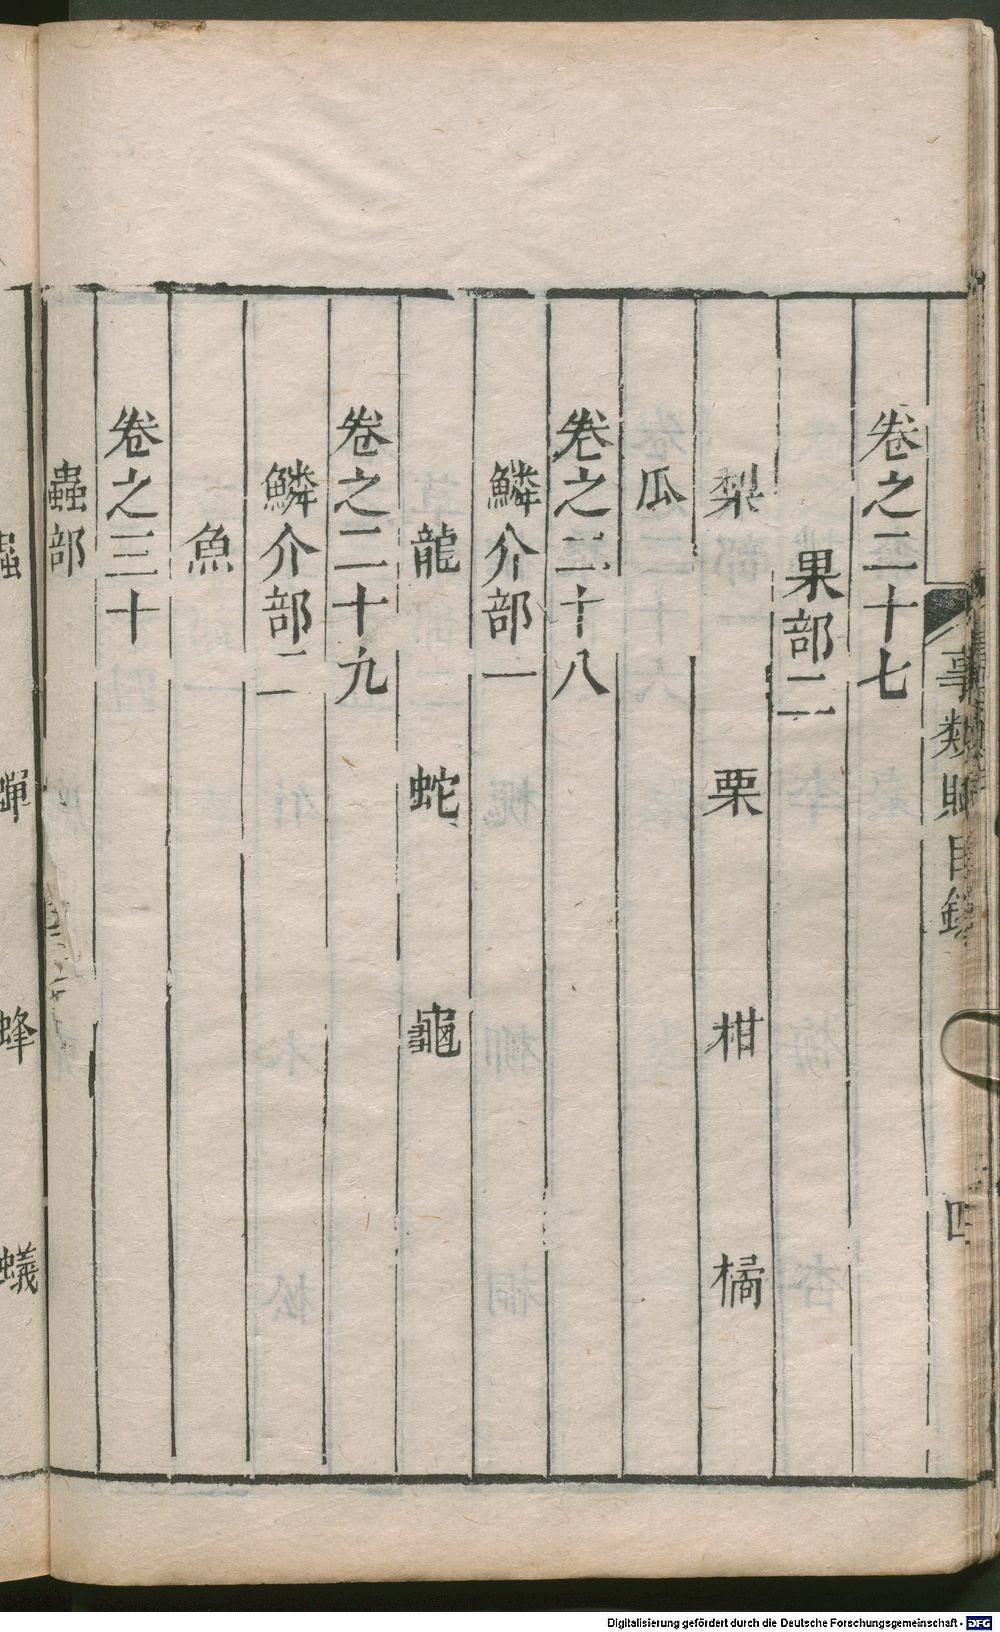 事類賦目錄
四
卷之二十七
果部二
梨 栗 柑 橘
瓜
卷之二十八
鱗介部一
龍 蛇 龜
卷之二十九
鱗介部二
魚
卷之三十
蟲部
蟬 蜂 蟻
Digitalisierung gefördert durch die Deutsche Forschungsgemeinschaft - DFG